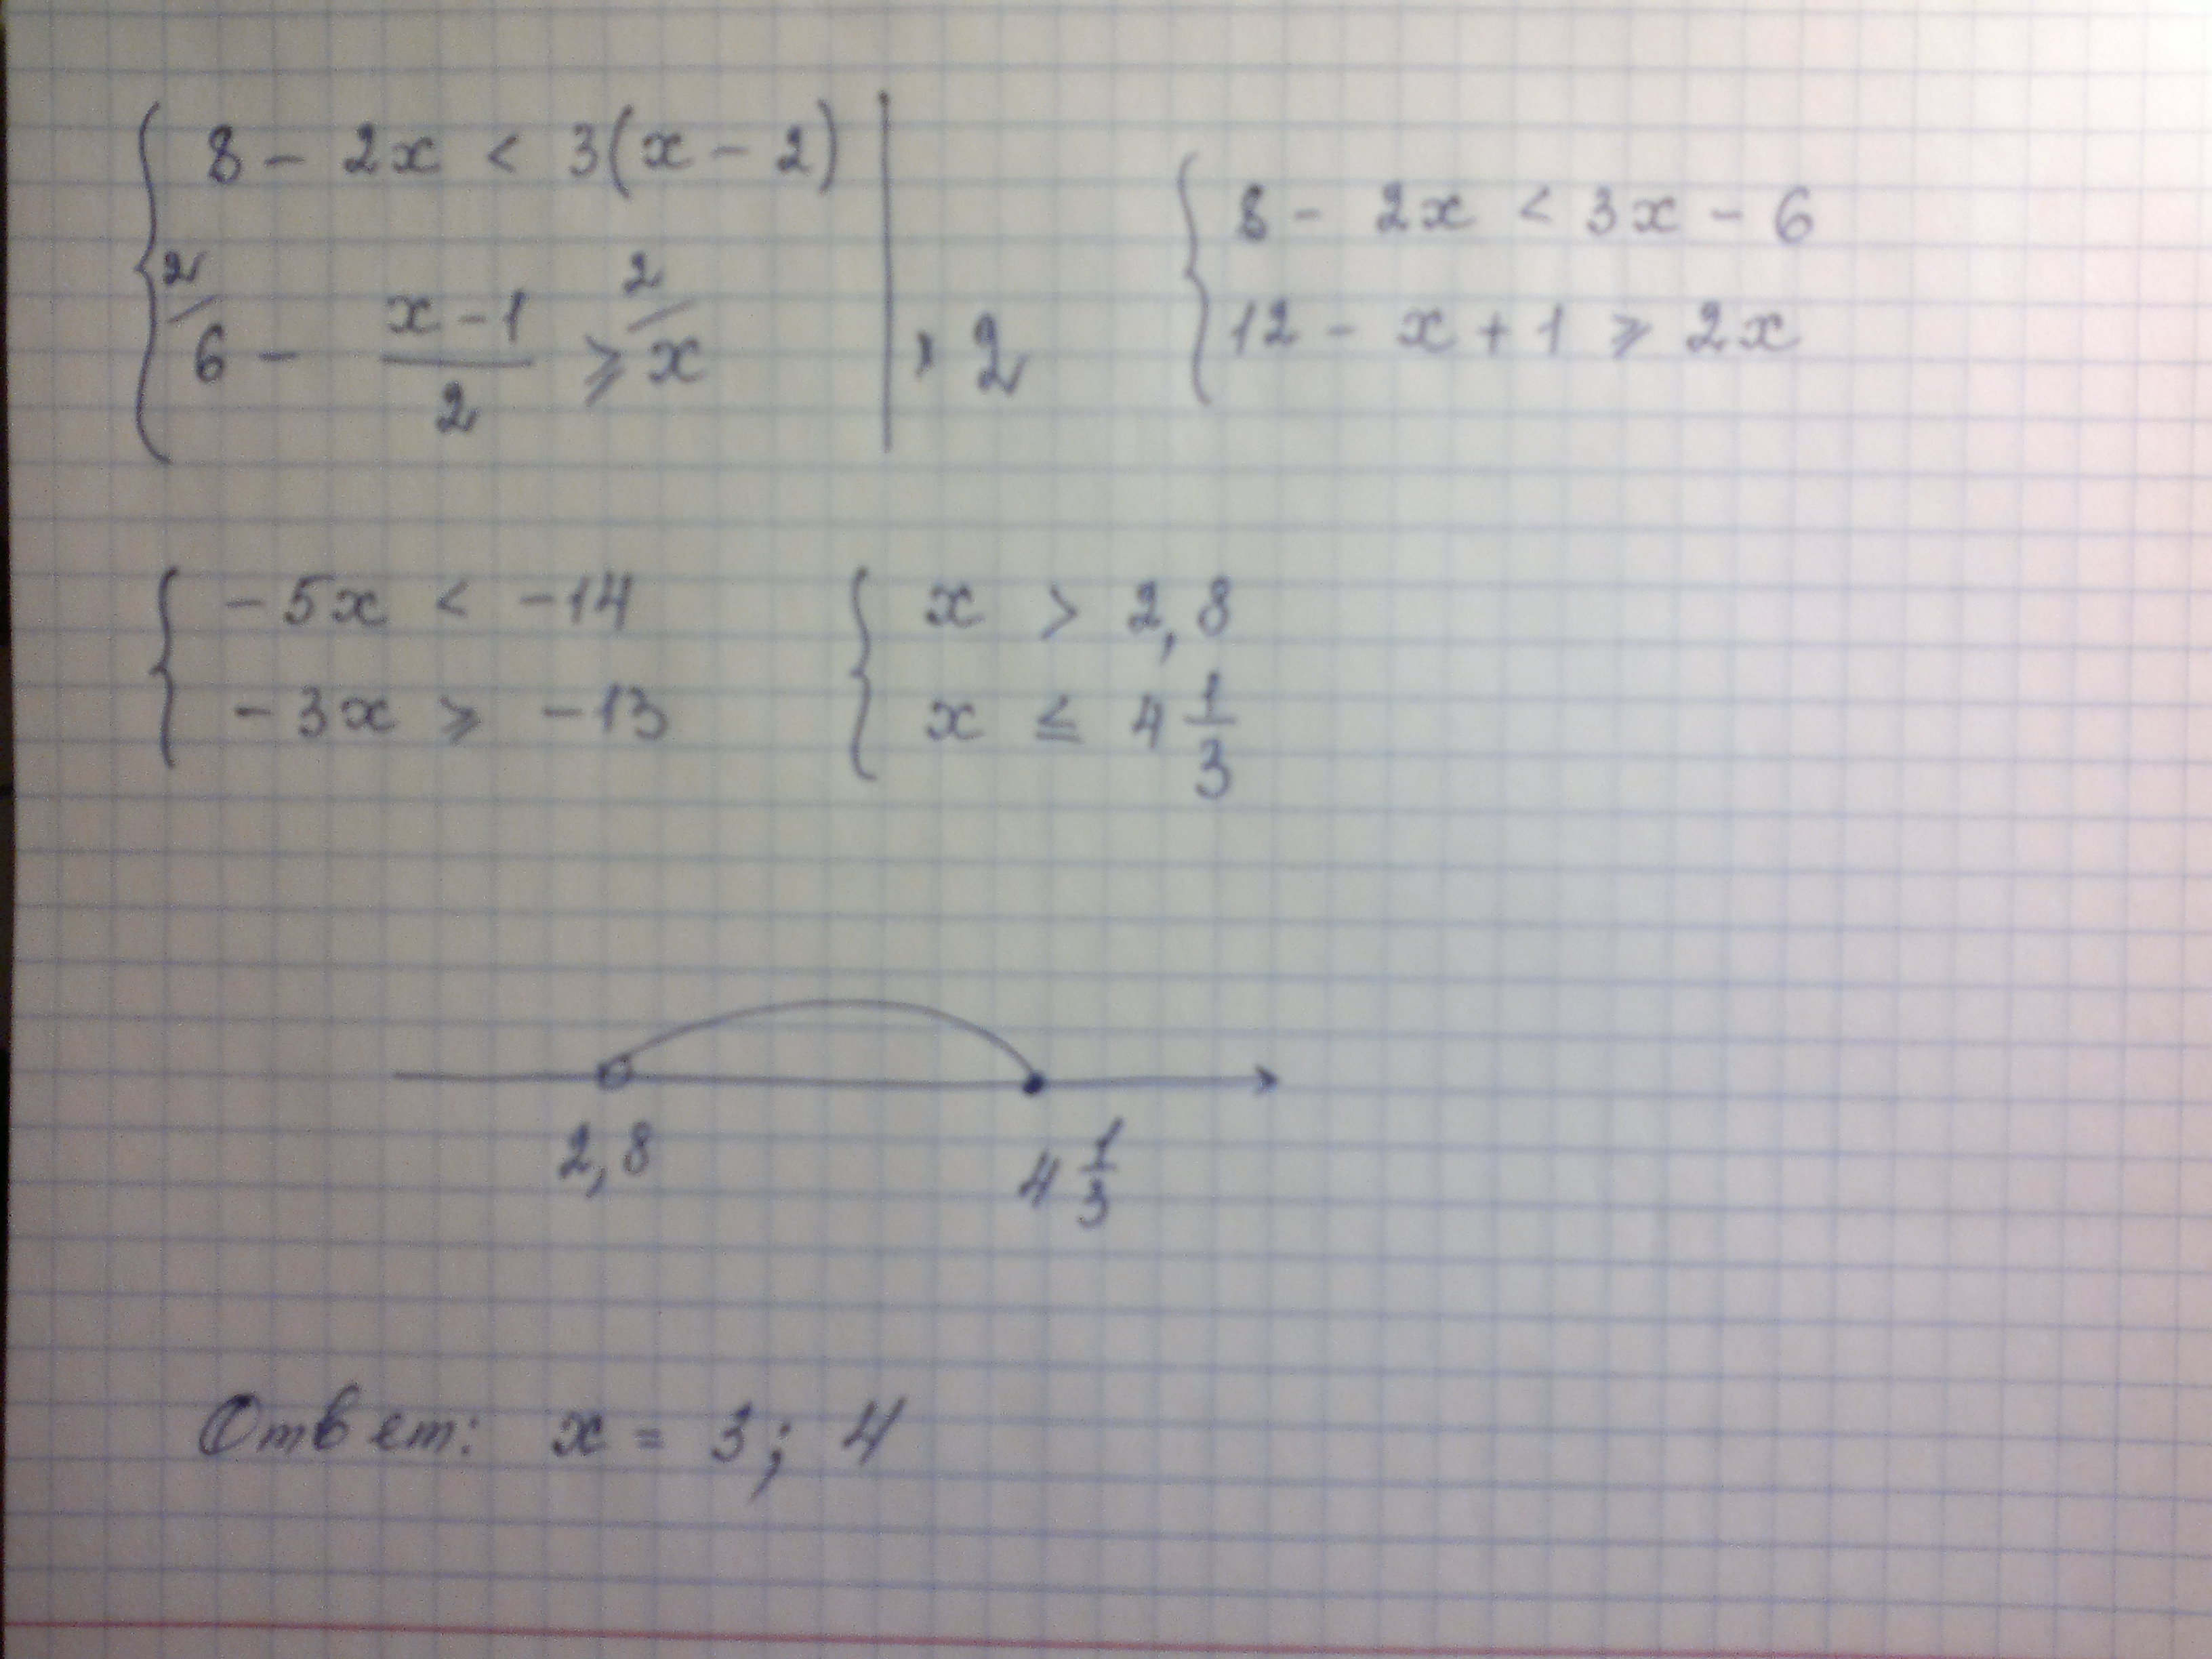 8 - 2x < 3(x - 2)
2/6 - (x-1)/2 ⩾ 2/x | · 2
8 - 2x < 3x - 6
12 - x + 1 ⩾ 2x
-5x < -14
-3x ⩾ -13
x > 2,8
x ≤ 4 1/3
2,8 4 1/3
Ответ: x = 3; 4